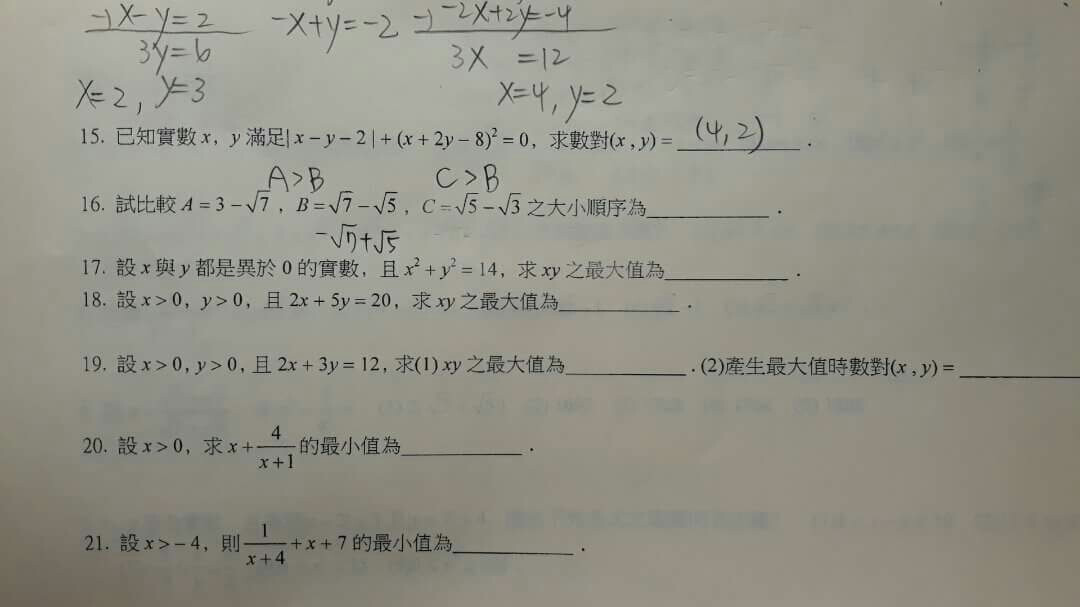 -) X-y=2 -X+y=-2 -) -2X+2y=-4
3y=6 3X =12
X=2, y=3 X=4, y=2
15. 已知實數 x，y 滿足| x − y − 2 | + (x + 2y − 8)² = 0，求數對(x , y) = (4,2) .
A>B C>B
16. 試比較 A = 3 − √7，B = √7 − √5，C = √5 − √3 之大小順序為____________ .
-√7+√5
17. 設 x 與 y 都是異於 0 的實數，且 x² + y² = 14，求 xy 之最大值為____________ .
18. 設 x > 0，y > 0，且 2x + 5y = 20，求 xy 之最大值為____________ .
19. 設 x > 0, y > 0，且 2x + 3y = 12，求(1) xy 之最大值為____________ . (2)產生最大值時數對(x , y) = ____________
20. 設 x > 0，求 x + 4/(x+1) 的最小值為____________ .
21. 設 x > − 4，則 1/(x+4) + x + 7 的最小值為____________ .